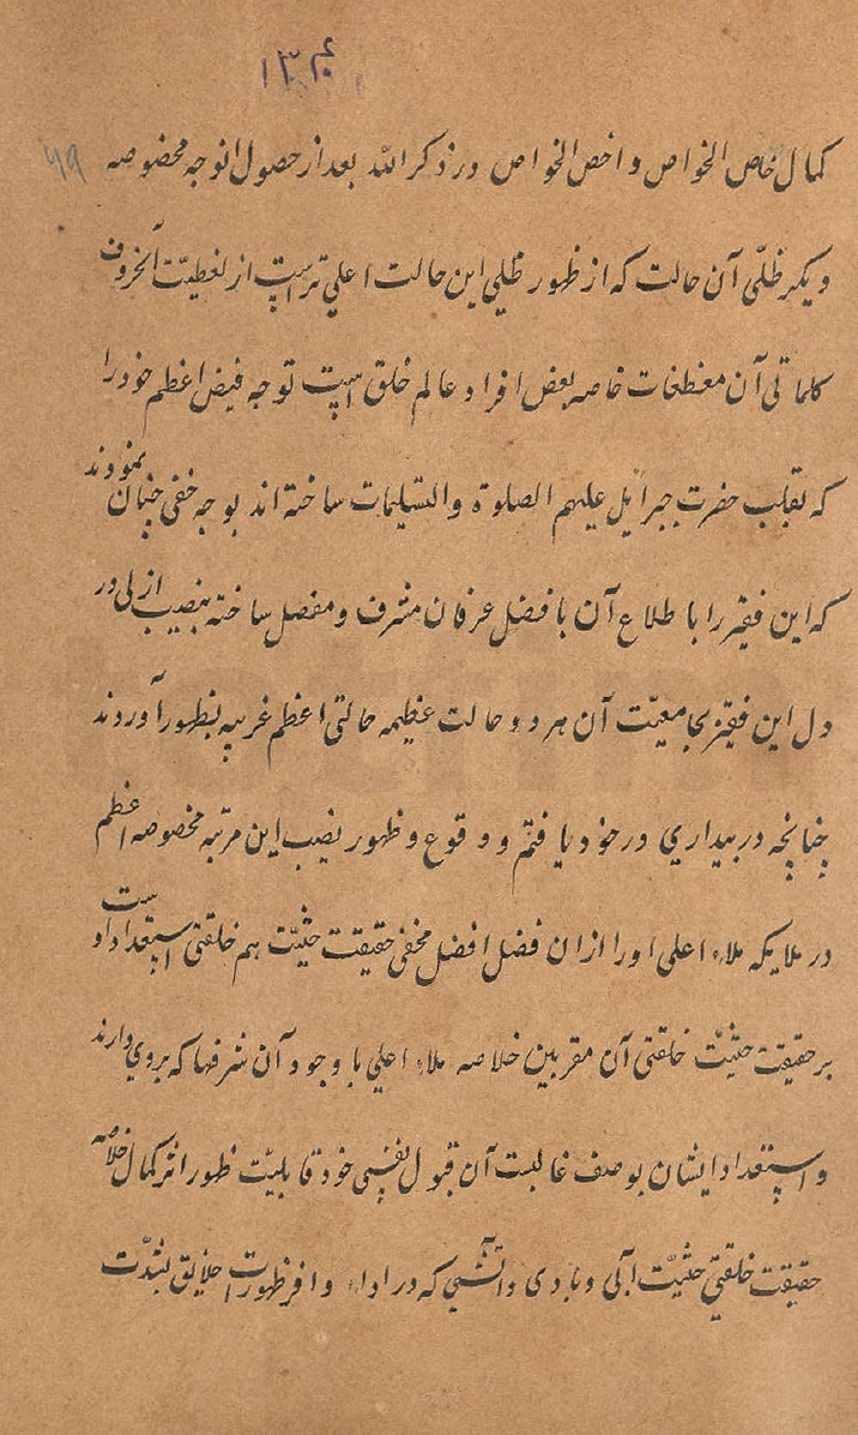 ۱۳۴
۴۹
کمال خاص الخواص و اخص الخواص در ذکر الله بعد از حصول انوجه مخصوصه
دیگر ظلّی آن حالت که از ظهور ظلی این حالت اعلی تر است از لفظیّت الحروف
کلماتی آن خاصه بعض افراد عالم خلق است توجه فیض اعظم خود را
که بقلب حضرت جبرائیل علیهم الصلوة والتسلیمات ساخته اند بوجه خفی چنان نمودند
که این فقیر را باطلاع آن بافضل عرفان مشرف و مفصل ساخته بنصیب ازلی در
دل این فقیر بجامعیّت آن هر دو حالت عظیمه حالتی اعظم غریبه بظهور آوردند
چنانچه در بیداری در خود یافتم و وقوع و ظهور نصیب این مرتبه مخصوصه اعظم
در ملایکه ملاء اعلی او را ازان فضل افضل مخفی حقیقت حثیّت هم خلقتی استعداد او ست
بر حقیقت حثیّت خلقتی آن مقربین خلاصه ملاء اعلی با وجود آن شرفها که بروی دارند
و استعداد ایشان بوصف غالبت آن قبول نفسی خود قابلیّت ظهور اثر کمال خلاصه
حقیقت خلقتی حثیّت آبی و بادی و آتشی که در ادا و افر ظهورات خلایق بشدّت